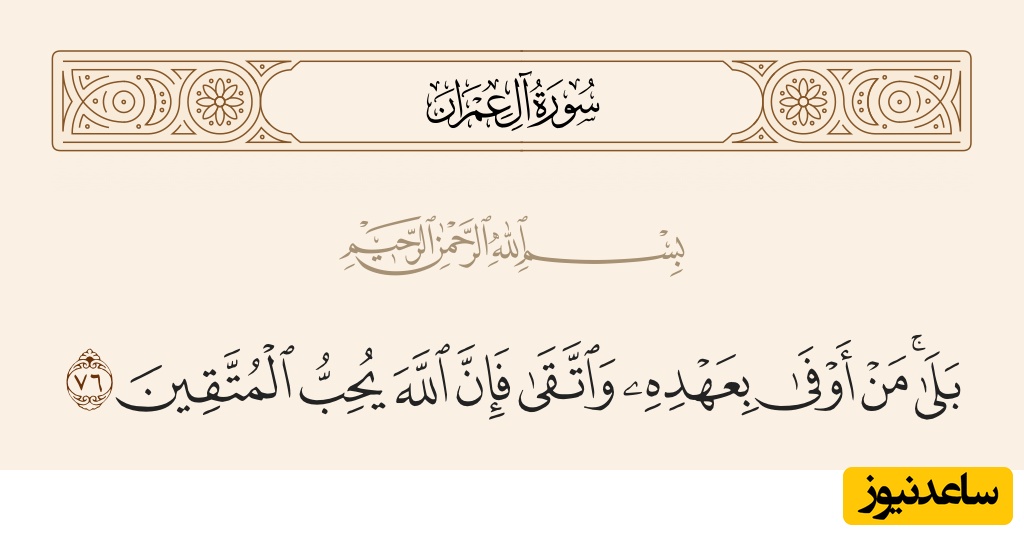 سُورَةُ آلِ عِمْرَان
بِسْمِ ٱللَّهِ ٱلرَّحْمَٰنِ ٱلرَّحِيمِ
بَلَىٰۚ مَنْ أَوْفَىٰ بِعَهْدِهِۦ وَٱتَّقَىٰ فَإِنَّ ٱللَّهَ يُحِبُّ ٱلْمُتَّقِينَ ٧٦
ساعدنیوز